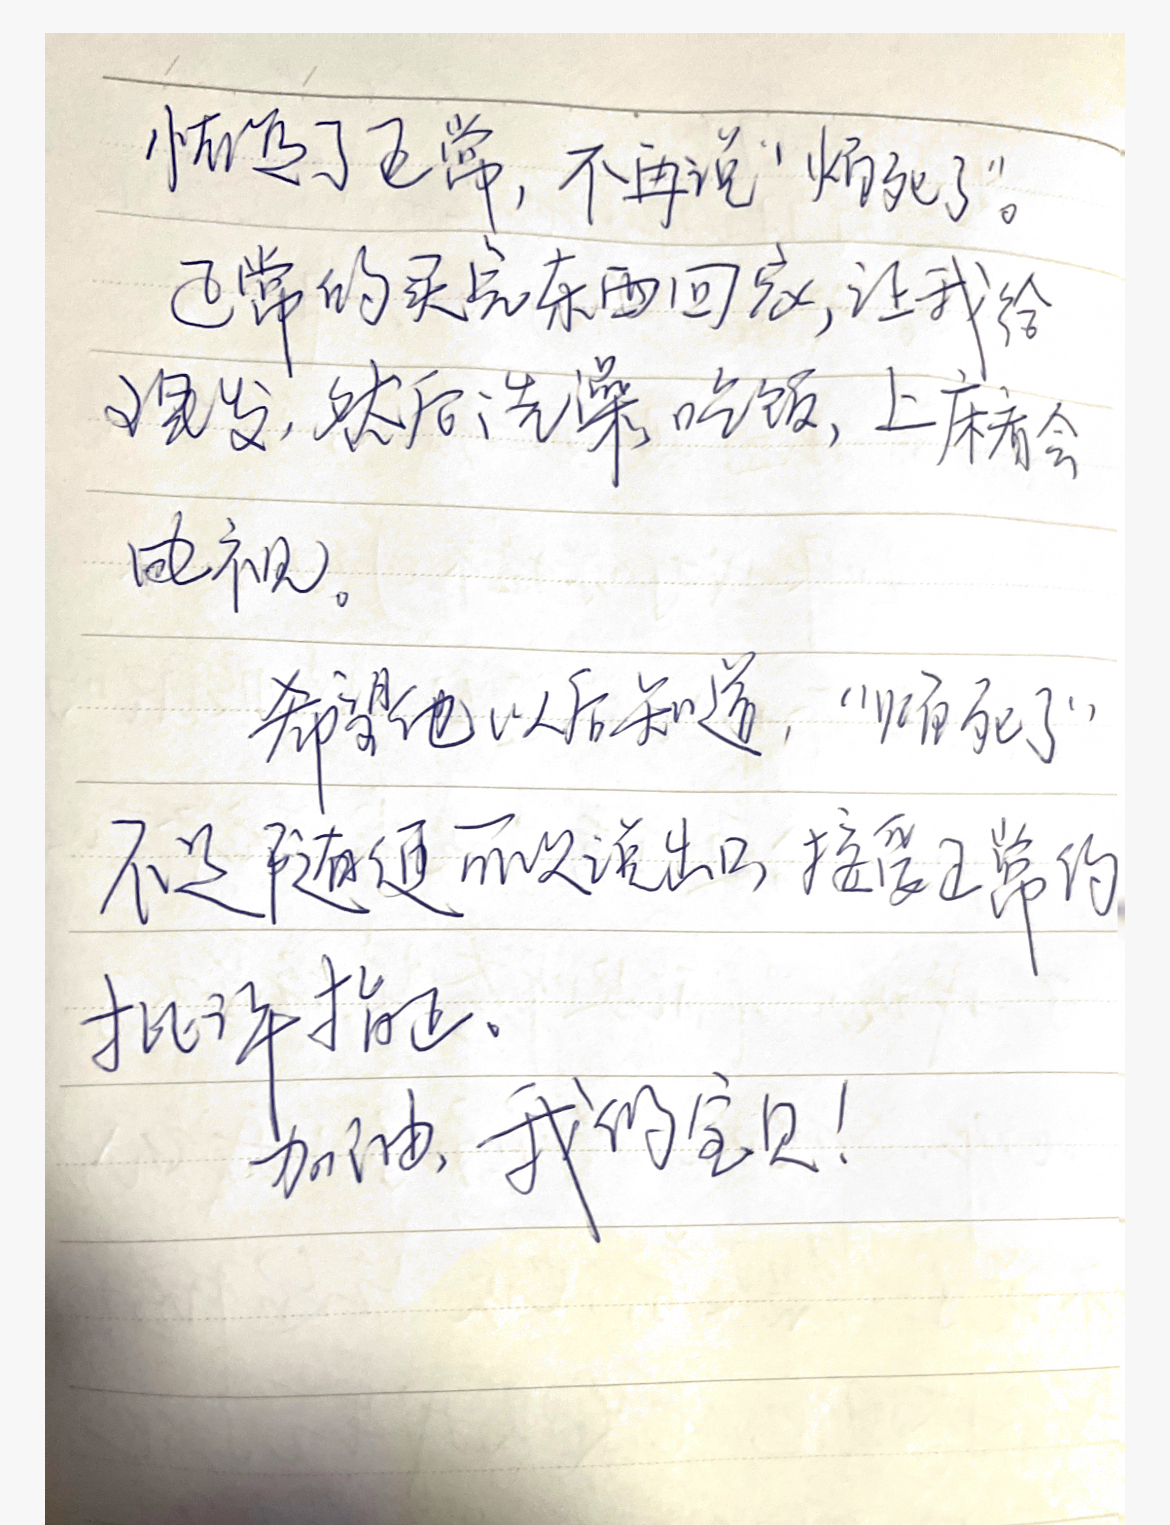 恢复了正常，不再说“烦死了”。
正常的买完东西回家，让我给
理发，然后洗澡，吃饭，上床看会
电视。
希望他以后知道，“烦死了”
不是随便可以说出口，接受正常的
批评指正、
加油，我的宝贝！